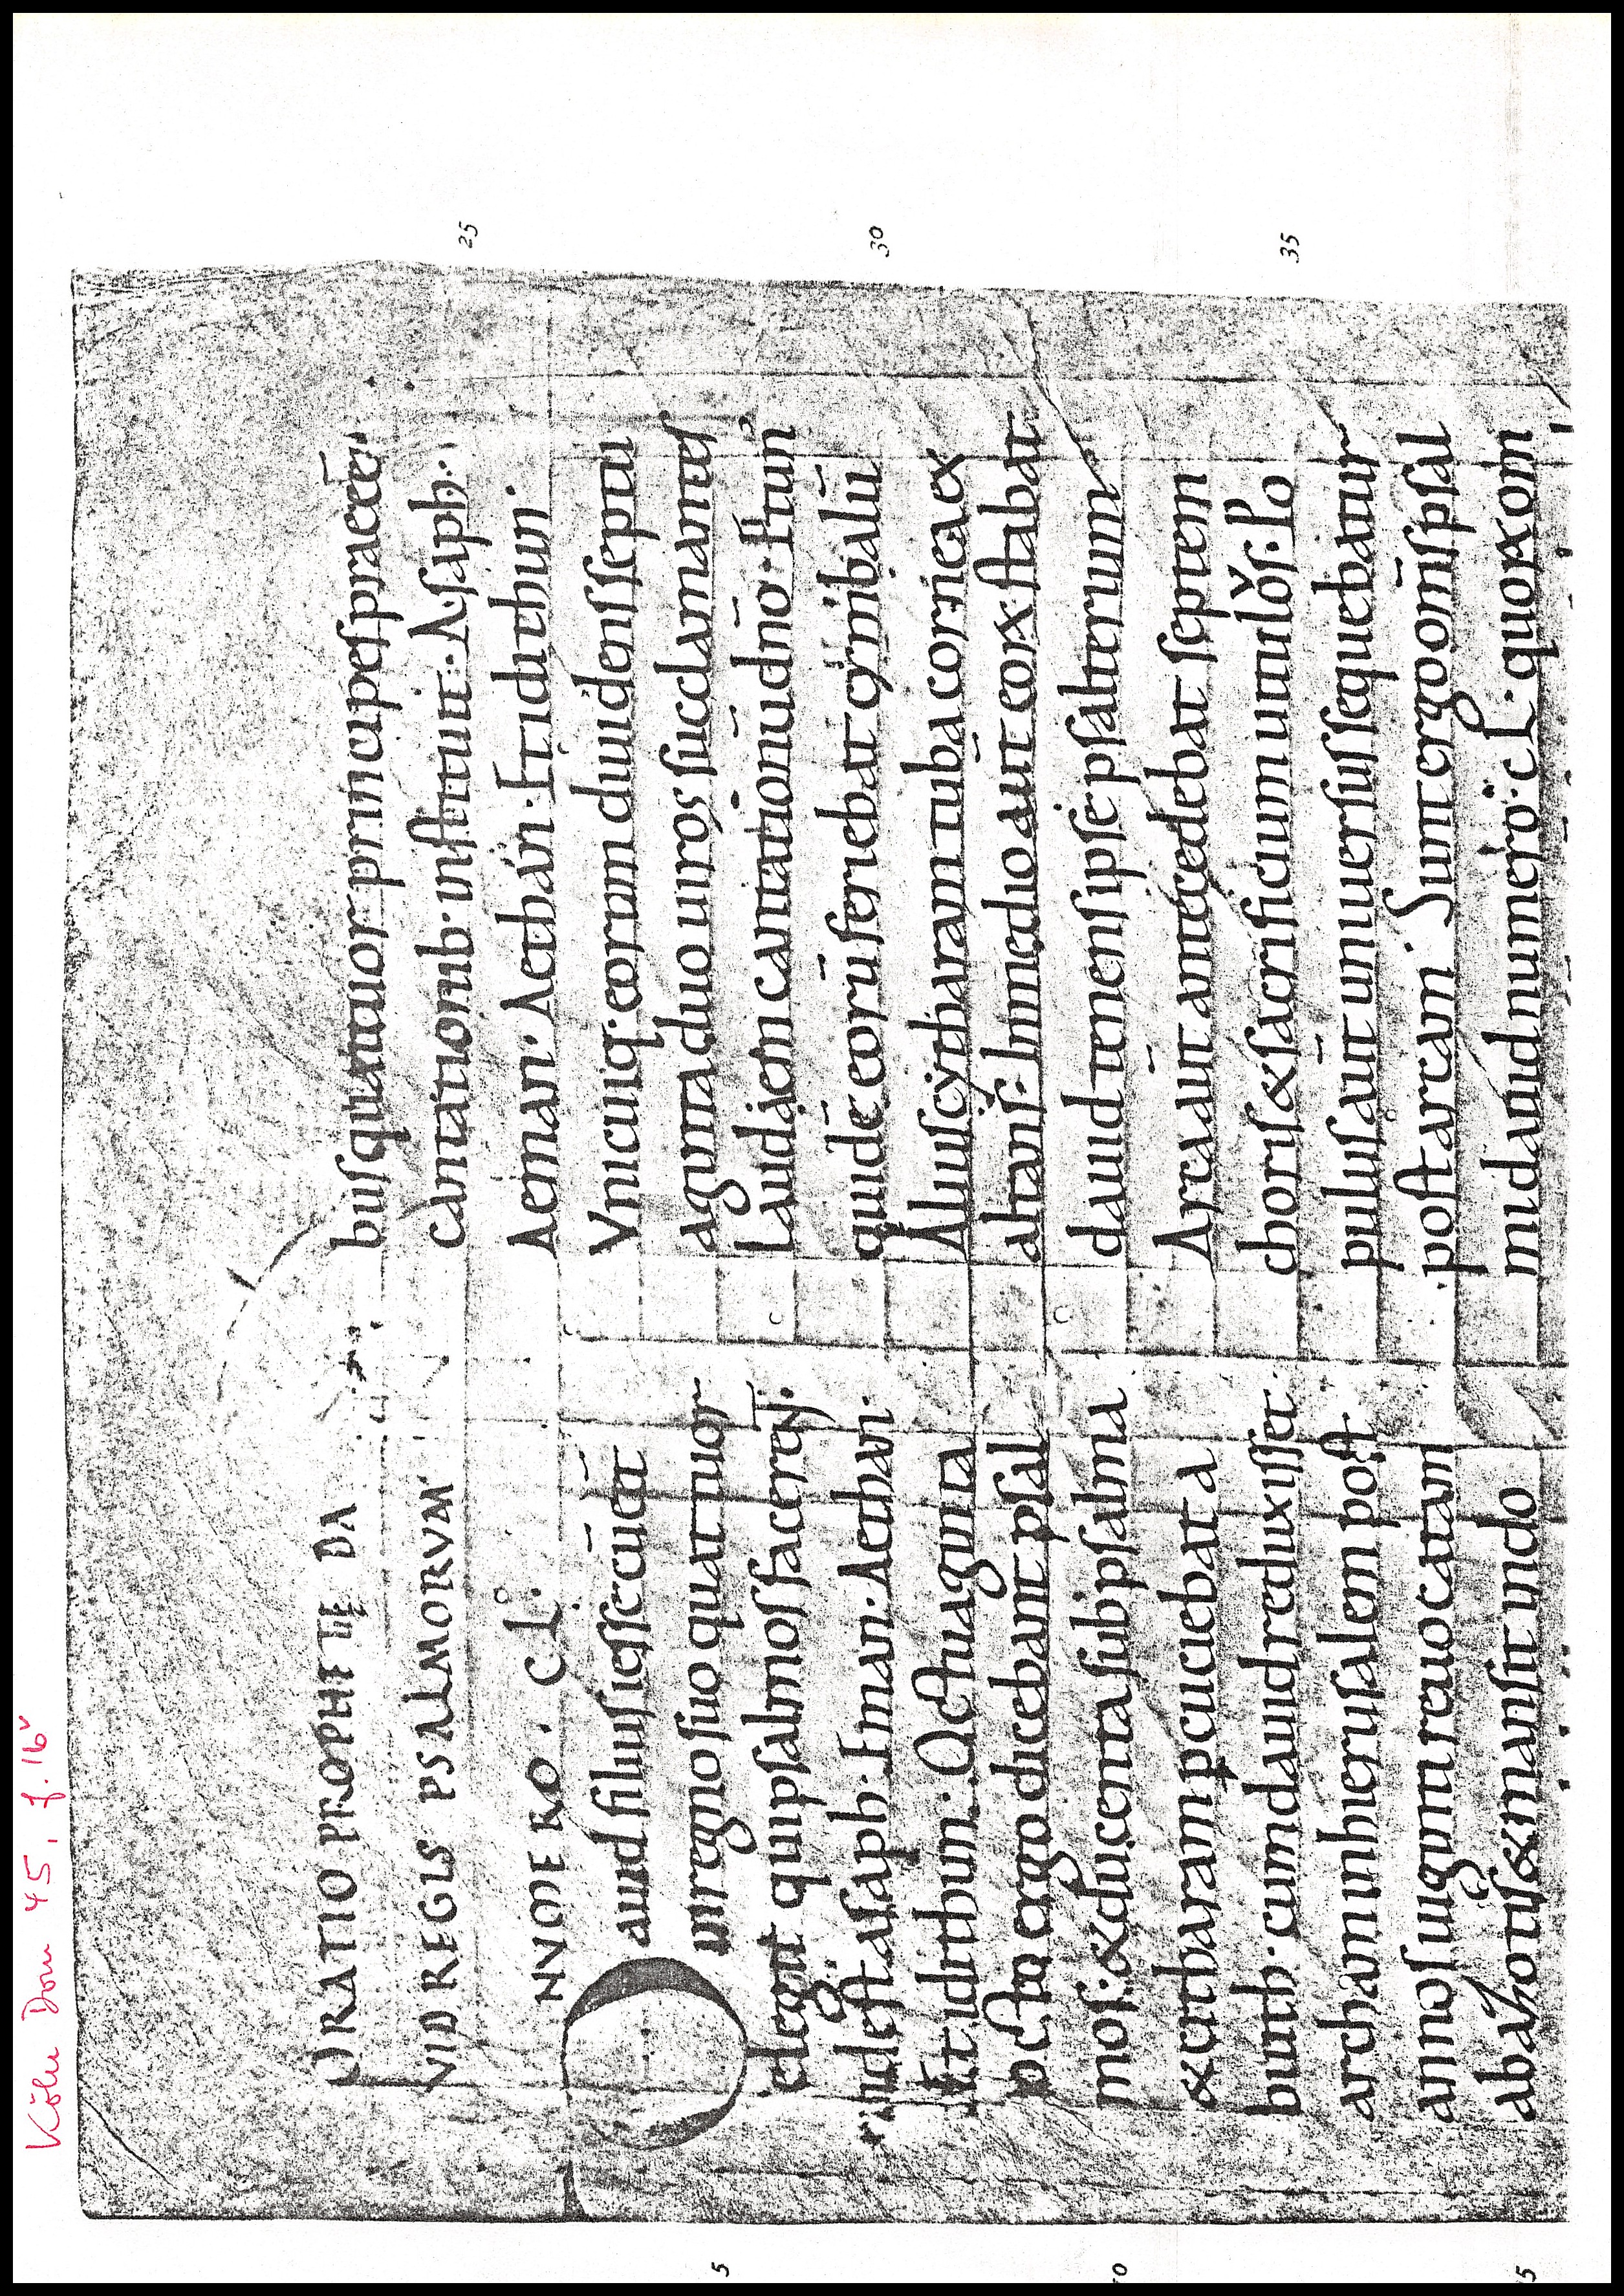 Köln Dom 45, f. 16v
ORATIO PROPHETE DA
VID REGIS PSALMORVM
NVMERO . CL.
Dauid filius iesse cū eēt
in regno suo quattuor
elegit qui psalmos facereNT.
id est asaph. Eman. Aethan.
Et idithun. Octuaginta
octo ergo dicebant psal
mos. & ducenta subipsalma
& cithara pcuciebat a
biuth. cum dauid reduxisset
archam in hierusalem post
annos uiginti reuocatam
ab azotis & mansit in do
bus quattuor principes praeeē
cantationib; instituit. Asaph.
Aeman. Aethan. Et idithun.
Vnicuiq; eorum diuidens septu
aginta duo uiros succlamantes
Laudaem cantationū dnō. Et un
quidē eorū feriebat cymbalū
Alius cytharam tuba cornea ex
altans. In medio aūt eoꝝ stabat
dauid tenens ipse psalterium
Arca aūt antecedebat septem
choris & sacrificium uitulos. Po
pulus aūt uniuersus sequebatur
post arcam. Sunt ergo om̄s psal
mi dauid numero. cL. quoꝝ om
5
10
15
25
30
35